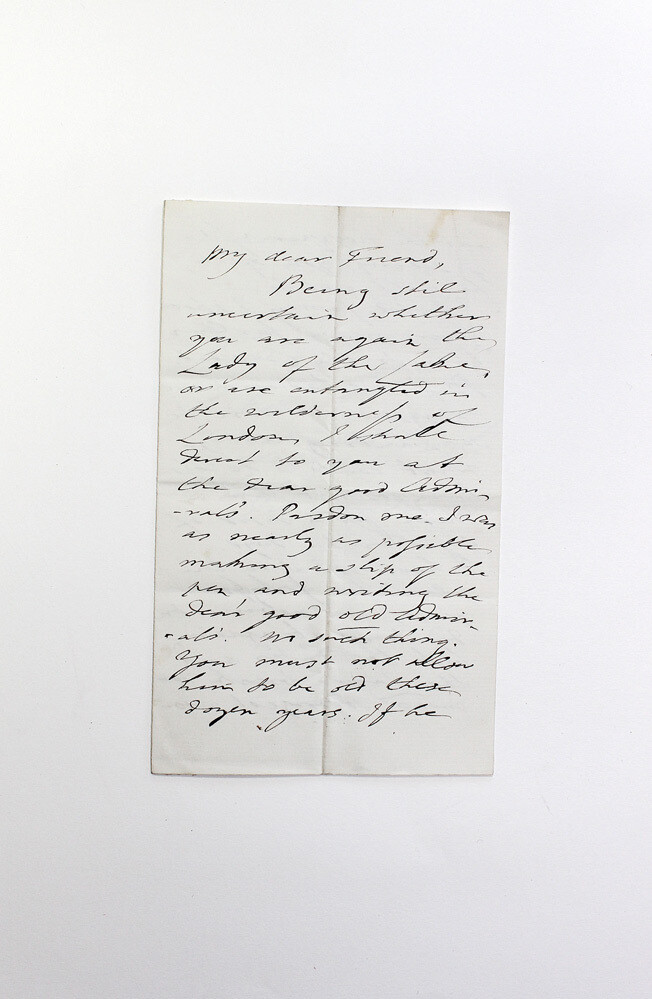 My dear Friend,
Being still
uncertain whether
you are again the
Lady of the Lake,
or are entangled in
the wilderness of
London, I shall
direct to you at
the dear good Admi-
-ral's. Pardon me. I was
as nearly as possible
making a slip of the
pen and writing the
dear good old Admir-
-al's. No such thing.
You must not allow
him to be old these
dozen years. If he